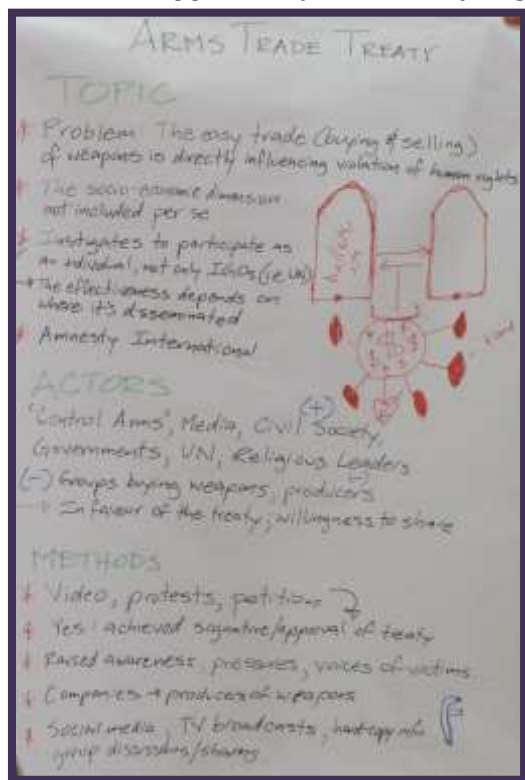 ARMS TRADE TREATY
TOPIC
Problem: The easy trade (buying & selling)
of weapons is directly influencing violation of human rights
The socio-economic dimension
not included per se
Instigates to participate as
an individual, not only IGOs (i.e. UN)
→ The effectiveness depends on
where it's disseminated
Amnesty International
ACTORS
(+)
'Control Arms', Media, Civil Society,
Governments, UN, Religious Leaders
(-) Groups buying weapons, producers
→ In favour of the treaty, willingness to share
METHODS
Video, protests, petition
Yes: achieved signature/approval of treaty
Raised awareness, pressures, voices of victims
Companies → producers of weapons
Social media, TV broadcasts, hardcopy info
group discussions/sharing